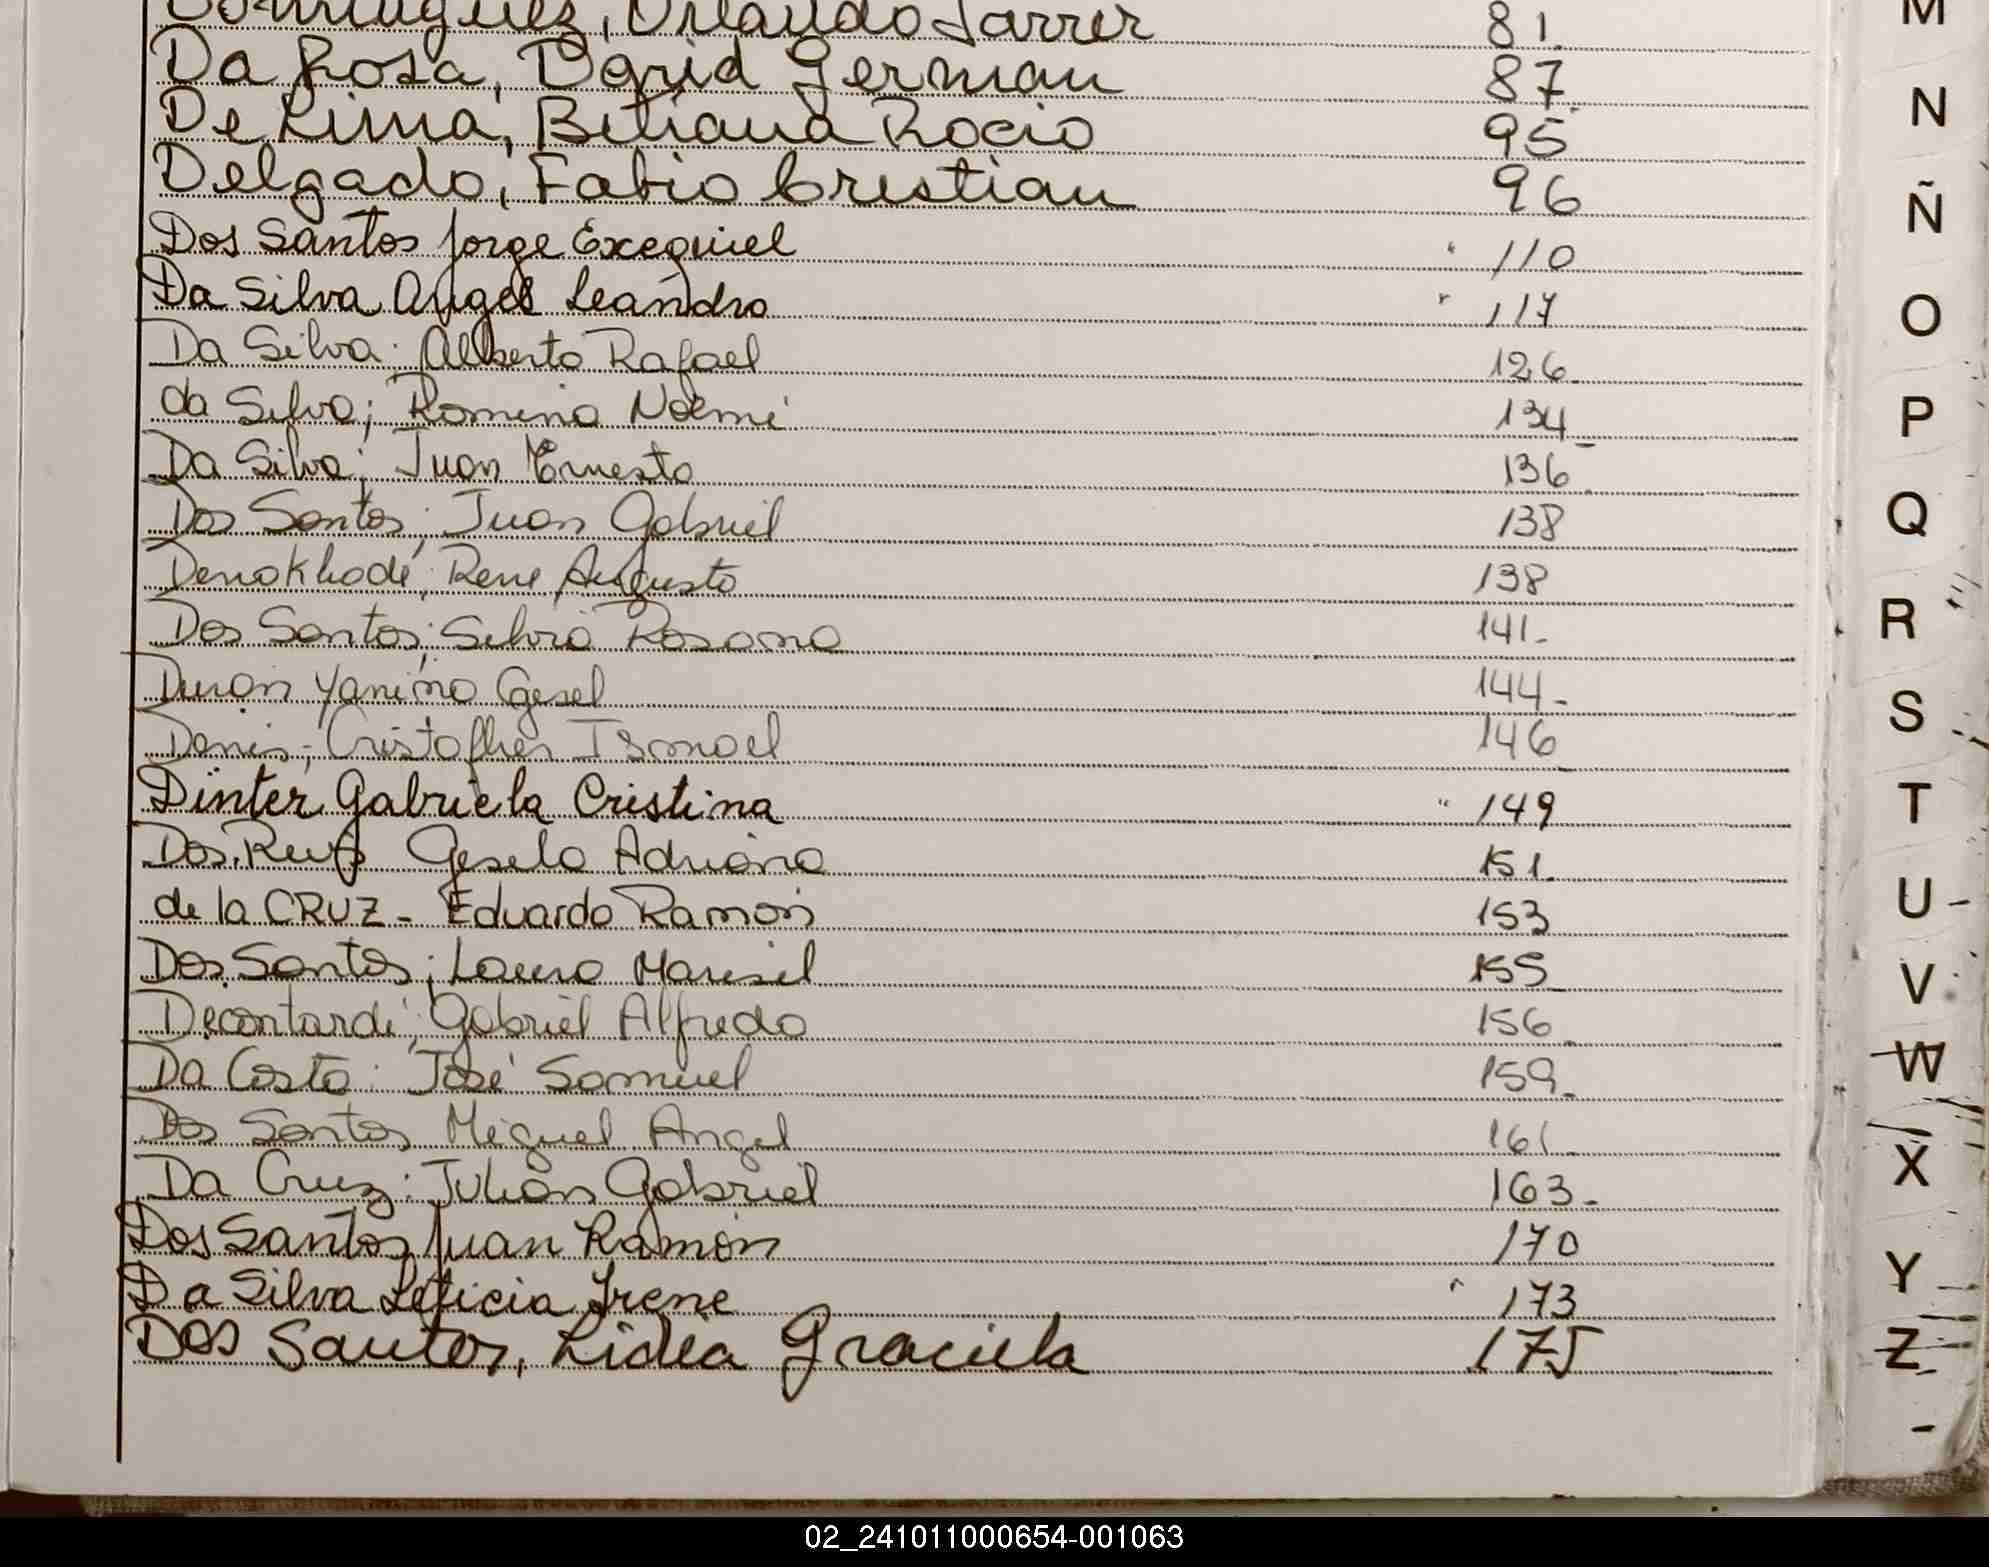 Dominguez, Orlando Jarrer 81.
Da Rosa, David German 87.
De Lima, Bibiana Rocio 95
Delgado, Fabio Cristian 96
Dos Santos Jorge Exequiel 110
Da Silva Angel Leandro 117
Da Silva; Alberto Rafael 126
da Silva; Romina Noemi 134
Da Silva; Juan Ernesto 136
Dos Santos; Juan Gabriel 138
Rene Augusto 138
Dos Santos; Silvia Rosana 141.
Duran Yanina Gesel 144.
Denis; Ismael 146
Dinter Gabriela Cristina 149
Dos Gesela Adriana 151.
de la CRUZ - Eduardo Ramón 153
Dos Santos; Laura Marisel 155
Decontardi; Gabriel Alfredo 156
Da Costa; José Samuel 159
Dos Santos Miguel Angel 161
Da Cruz; Julian Gabriel 163.
Dos Santos Juan Ramón 170
Da Silva Leticia Irene 173
Dos Santos, Lidia Graciela 175
M
N
Ñ
O
P
Q
R
S
T
U
V
W
X
Y
Z
02_241011000654-001063